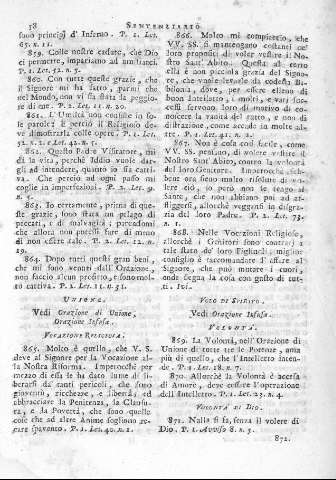 58 SENTENZIARIO
sono principj d' Inferno. P. 1. Let.
65. n. 11.
859. Colle nostre cadute, che Dio
ci permette, impariamo ad umiliarci.
P. 1. Let. 52. n. 5.
860. Con tutte queste grazie, che
il Signore mi ha fatto, parmi che
nel Mondo, non vi sia stata la peggio-
re di me. P. 2. Let. 11. n. 20.
861. L'Umiltà non consiste in so-
le parole: E perciò il Religioso de-
ve dimostrarla colle opere. P. 1. Let.
862. Questo Padre Visitatore, mi
dà la vita, perchè Iddio vuole dar-
gli ad intendere, quanto io sia catti-
va. Che perciò ad ogni passo mi
coglie in imperfezioni. P. 2. Let. 9.
n. 5.
863. Io certamente, prima di que-
ste grazie, sono stata un pelago di
peccati, e di malvagità; parendomi
che allora non potessi fare di meno
di non essere tale. P. 2. Let. 12. n.
29.
864. Dopo tutti questi gran beni,
che mi sono venuti dall'Orazione,
non faccio alcun profitto, e sono mol-
to cattiva. P. 2. Let. 11. n. 31.
UNIONE.
Vedi Orazione di Unione,
Orazione Infusa.
VOCAZIONE RELIGIOSA.
865. Molto è quello, che V. S.
deve al Signore per la Vocazione al-
la Nostra Riforma. Imperocchè per
mezzo di essa le ha dato lume di li-
berarsi da tanti pericoli, che sono
gioventù, ricchezze, e libertà; ed
abbracciare la Penitenza, la Clausu-
ra, e la Povertà, che sono quelle
cose che ad altre Anime sogliono re-
care spavento. P. 1. Let. 40. n. 2.
866. Molto mi compiaccio, che
VV. SS. si mantengano costanti ne'
loro propositi di voler vestire il No-
stro Sant' Abito. Questa al certo
ella è non piccola grazia del Signo-
re, che vuole siavele da codesta Bi-
sbidono, dove, per essere elleno di
buon Intelletto, i molti, e varj suc-
cessi servono loro di motivo di co-
noscere la vanità del tutto, e non di
distrazione, come accade in molte al-
tre. P. 1. Let. 41. n. 2.
867. Non è cosa così facile, come
VV. SS. pensano, di volere vestire il
Nostro Sant'Abito, contro la volontà
del loro Genitore. Imperocchè seb-
bene ora sono molto risolute di vo-
lere ciò, io però non le tengo sì
Sante, che non abbiano poi ad af-
fliggersi, allorchè veggansi in disgra-
zia del loro Padre. P. 2. Let. 73.
n. 1.
868. Nelle Vocazioni Religiose,
allorchè i Genitori sono contrarj a
tale stato de' loro Figliuoli, miglior
consiglio è raccomandare l'affare al
Signore, che può mutare i cuori,
onde segua la cosa con gusto di tut-
ti. Ivi.
VOLO DI SPIRITO.
Vedi Orazione Infusa.
VOLONTÀ.
869. La Volontà, nell'Orazione di
Unione di tutte tre le Potenze, ama
più di quello, che l'Intelletto inten-
de. P. 1. Let. 18. n. 7.
870. Allorchè la Volontà è accesa
di Amore, deve cessare l'operazione
dell'Intelletto. P. 1. Let. 23. n. 4.
VOLONTÀ DI DIO.
871. Nulla si fa, senza il volere di
Dio. P. 1. Avviso 8. n. 5.
872.